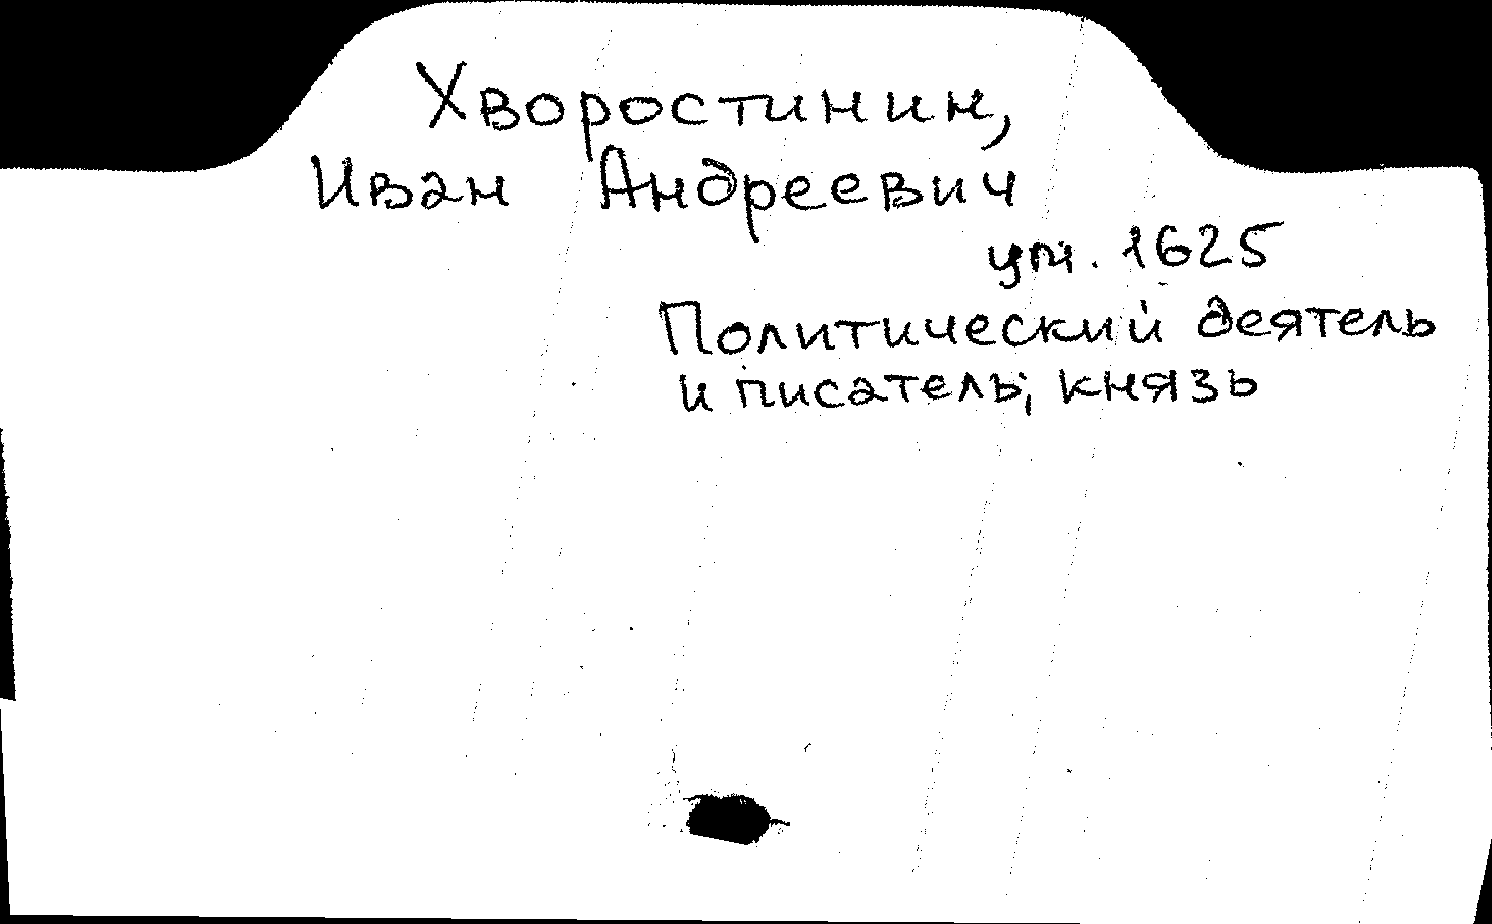 Хворостинин,
Иван Андреевич
ум. 1625
Политический деятель
и писатель; князь